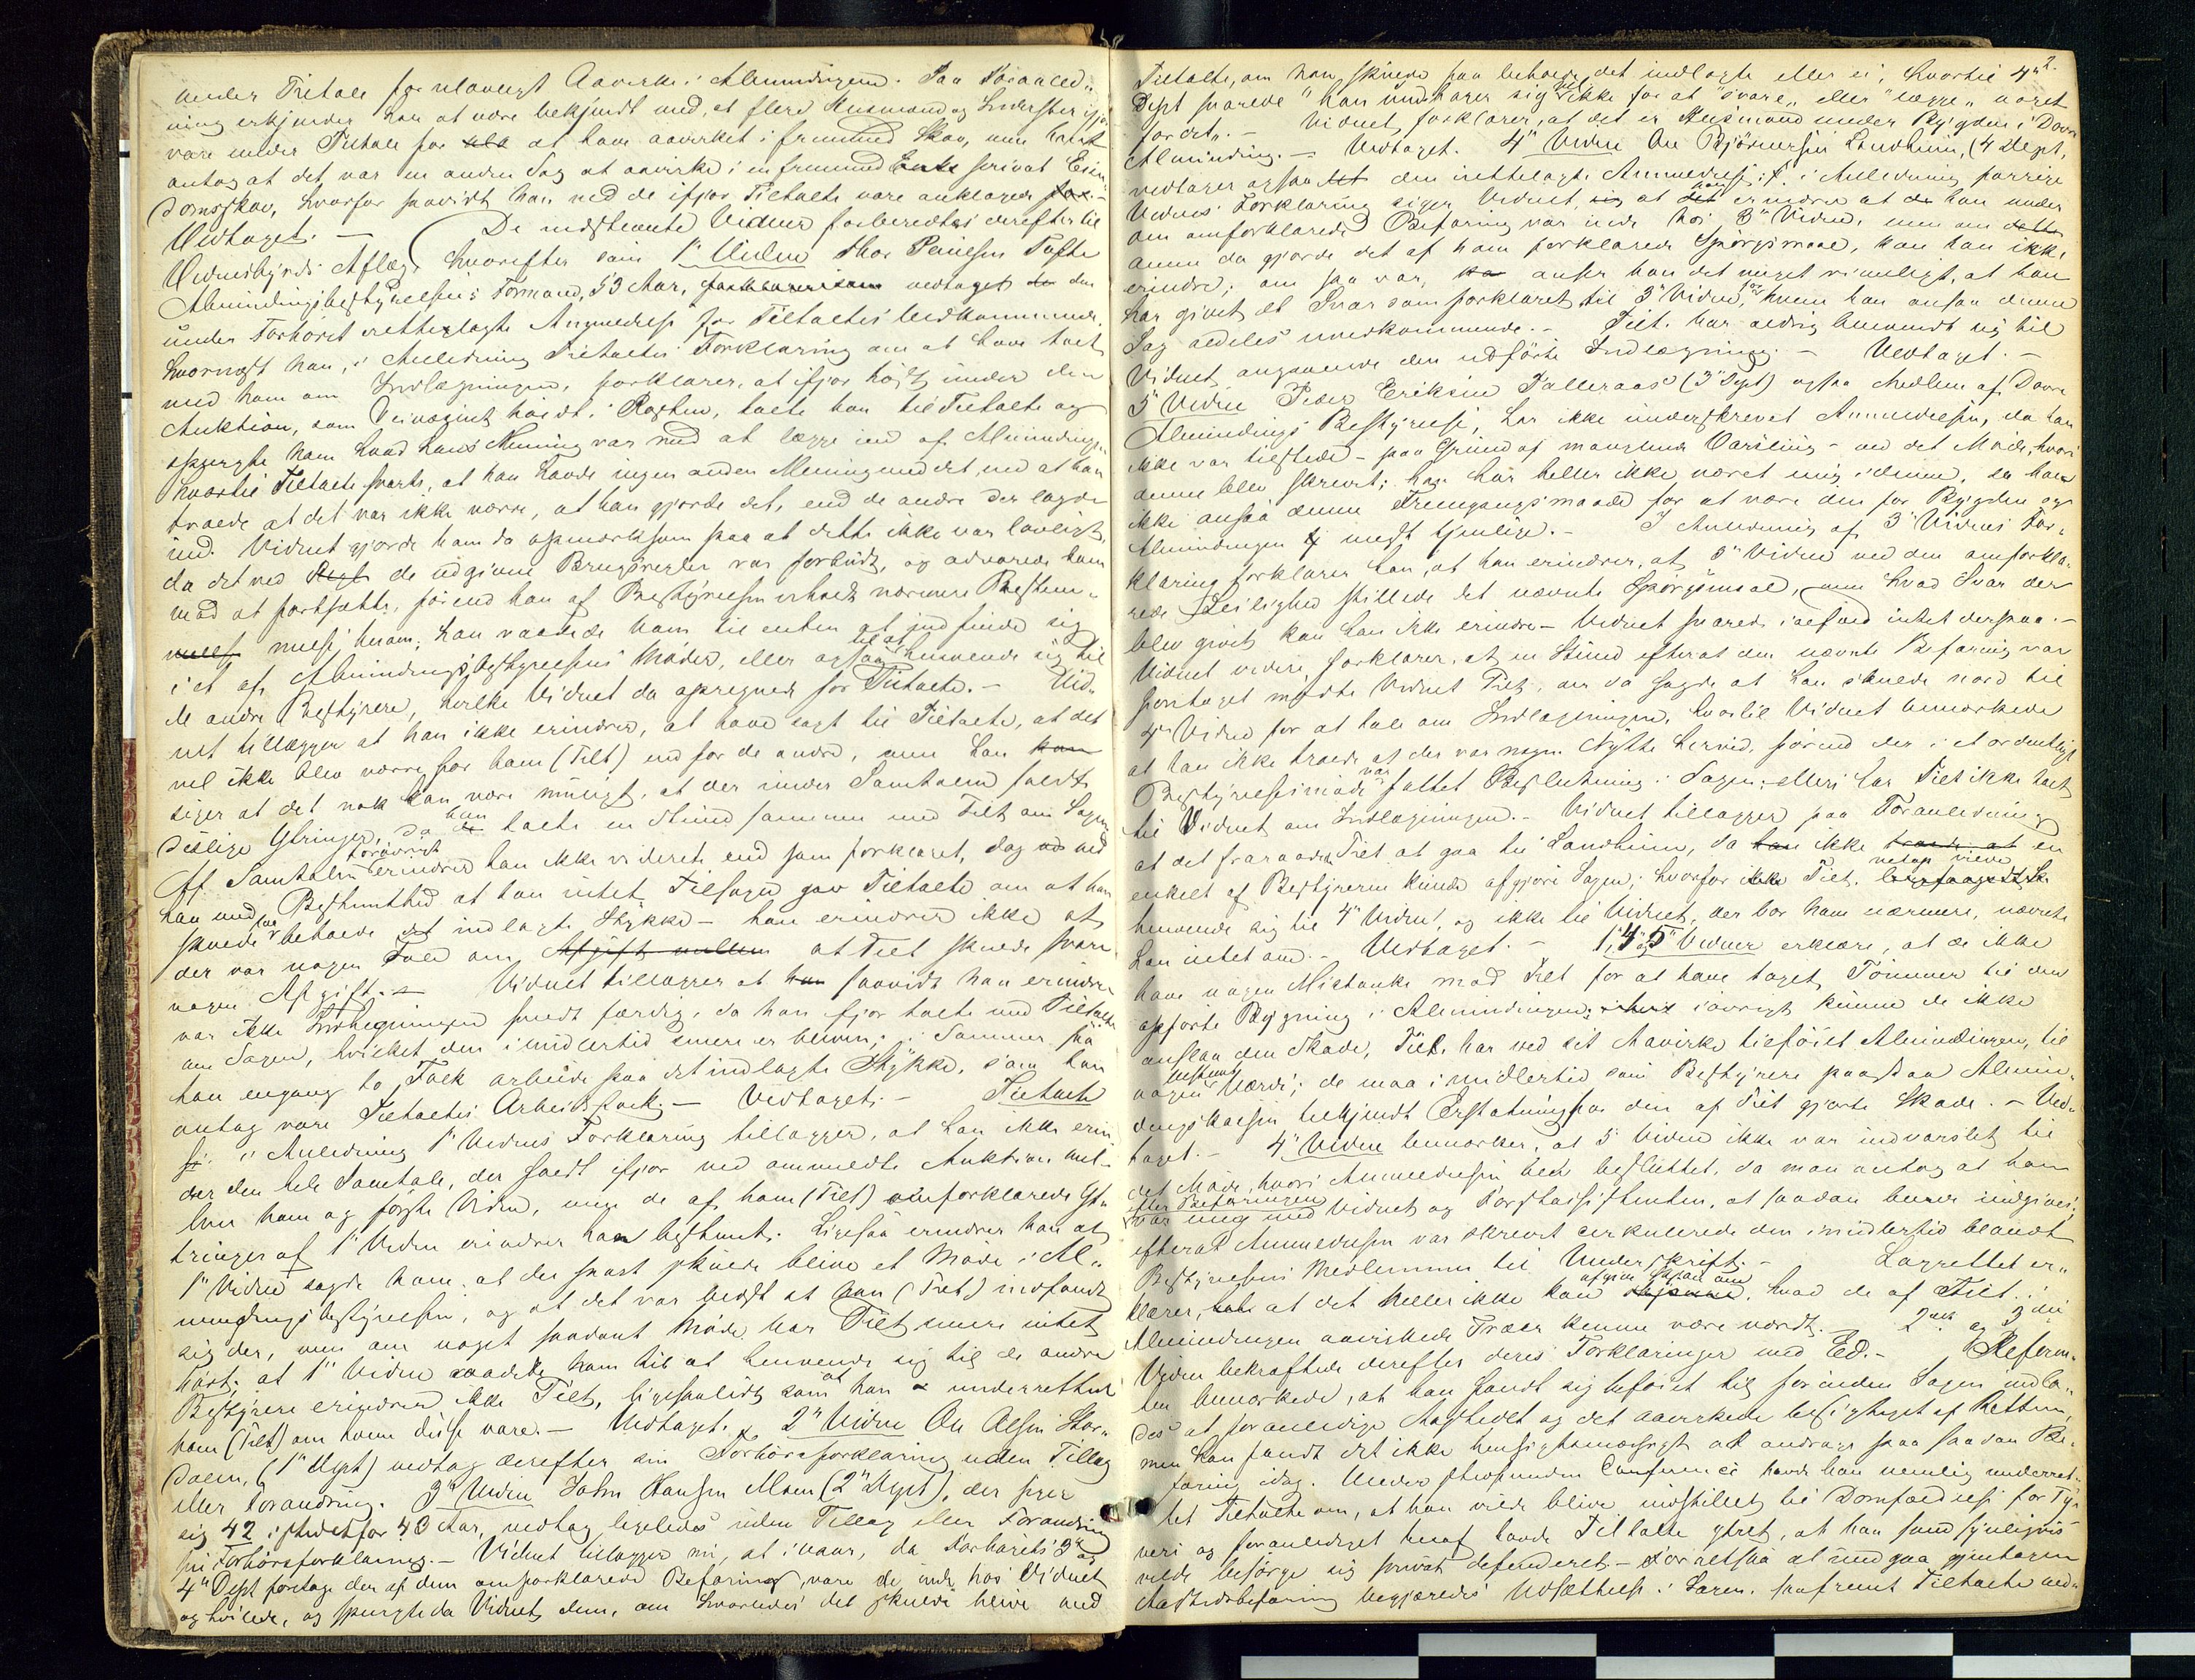 under Tiltale for ulovligt Aavirke i Almindingen. Paa Foranled-
ning erkjender han at være bekjendt med, at flere Husmænd og Inderster ifjor
vare under Tiltale for at have aavirket i fremmed Skov, men han
antog at det var en anden Sag at aavirke i en fremmed privat Eien-
domsskov, hvorfor saavidt han ved de ifjor Tiltalte vare anklagede
Vedtaget. — De indstevnte Vidner forberedtes derefter til
Vidnesbyrds Aflæg hvorefter som 1ste Vidne Thor Paulsen Tofte
Almindingsbestyrelsens Formand, 53 Aar, vedtager den
under Forhöret irettelagte Anmeldelse for Tiltaltes Vedkommende,
hvornæst han, i Anledning Tiltaltes Forklaring om at have talt
med ham om Indlægningen, forklarer, at ifjor höst under den
Auktion, som Veivæsenet holdt i Rosten, talte han til Tiltalte og
spurgte ham hvad hans Mening var med at lægge ind af Almindingen
hvortil Tiltalte svarte, at han havde ingen anden Mening med det, end at han
troede at det var ikke værre, at han gjorde det, end de andre der lagde
ind. Vidnet gjorde ham da opmærksom paa at dette ikke var lovligt,
da det ved de udgivne Brugsregler var forbudt, og advarede ham
mod at fortsætte, förend han af Bestyrelsen erholdt nærmere Bestem-
melse herom; han raadede ham til enten at indfinde sig
i et af Almindingsbestyrelsens Möder, eller ogsaa til at henvende sig til
de andre Bestyrere, hvilke Vidnet da opregnede for Tiltalte. — Vid-
net tillægger at han ikke erindrer, at have sagt til Tiltalte, at det
vel ikke blev værre for ham (Tilt) end for de andre, men han
siger at det nok kan være muligt, at der under Samtalen faldt
deslige Yttringer, da han talte en Stund sammen med Tilt om Sagen
Af Samtalen forövrigt erindrer han ikke videre end som forklaret, dog ved
han med Bestemthed at han intet Tilsagn gav Tiltalte om at han
skulde faa beholde det indlagte Stykke — han erindrer ikke at
der var nogen Tale om at Tilt skulde svare
nogen Afgift. — Vidnet tillægger at saavidt han erindrer
var ikke Indhegningen fuldt færdig, da han ifjor talte med Tiltalte
om Sagen, hvilket den imidlertid senere er bleven; i Sommer saa
han engang to Folk arbeide paa det indlagte Stykke, som han
antog vare Tiltaltes Arbeidsfolk. — Vedtaget. — Tiltalte
i Anledning 1ste Vidnes Forklaring tillægger, at han ikke erin-
drer den hele Samtale, der faldt ifjor ved ommeldte Auktion mel-
lem ham og förste Vidne, men de af ham (Tilt) omforklarede Yt-
tringer af 1ste Vidne erindrer han bestemt. Ligesaa erindrer han at
1ste Vidne sagde ham, at der snart skulde blive et Möde i Al-
mindingsbestyrelsen, og at det var bedst at han (Tilt) indfandt
sig der, men om noget saadant Möde har Tilt senere intet
hört; at 1ste Vidne raadede ham til at henvende sig til de andre
Bestyrere erindrer ikke Tilt, ligesaalidt som at han underrettede
ham (Tilt) om hvem disse vare. — Vedtaget. 2det Vidne Ole Olsen Stor-
dalen, (1ste Dept) vedtog derefter sin Forhörsforklaring uden Tillæg
eller Forandring. 3die Vidne John Hansen Moen (2den Dept), der siger
sig 42 istedetfor 40 Aar, vedtog ligeledes uden Tillæg eller Forandring
sin Forhörsforklaring. — Vidnet tillægger nu, at ivaar, da Forhörets 3die og
4de Dept foretog den af dem omforklarede Befaring, vare de inde hos Vidnet
og hvilede, og spurgte da Vidnet dem, om hvorledes det skulde blive med
Tiltalte, om han skulde faa beholde det indlagte eller ei; hvortil 4de
Dept svarede "han undtager sig vel ikke for at "svare" eller "lægge" noget
for det". — Vidnet forklarer, at det er Husmand under Bygden i Dovre
Alminding. — Vedtaget. 4de Vidne Ole Björnersen Landheim, (4 Dept,
vedtager ogsaa den irettelagte Anmeldelse; i Anledning forrige
Vidnes Forklaring siger Vidnet, at han erindrer at han under
om omforklarede Befaring var inde hos 3die Vidne, men om
denne da gjorde det af ham forklarede Spörgsmaal, kan han ikke
erindre; om saa var, anser han det meget rimeligt, at han
har givet et Svar som forklaret til 3die Vidne, hvem han ansaa denne
Sag aldeles uvedkommende. — Tilt. har aldrig henvendt sig til
Vidnet angaaende den udförte Indlægning. — Vedtaget. —
5te Vidne Peder Eriksen Talleraas (3die Dept) ogsaa Medlem af Dovre
Almindings Bestyrelse, har ikke underskrevet Anmeldelsen, da han
ikke var tilstede — paa Grund af manglende Varsling — ved det Möde, hvori
denne blev skrevet; han har heller ikke været enig i denne, da han
ikke ansaa denne Fremgangsmaade for at være den for Bygden og
Almindingen mest tjenlige. — I Anledning af 3die Vidnes For-
klaring forklarer han, at han erindrer, at 3die Vidne ved den omforkla-
rede Leilighed stillede det nævnte Spörgsmaal, men hvad Svar der
blev givet kan han ikke erindre — Vidnet svarede ialfald intet derpaa. —
Vidnet videre forklarer, at en Stund efterat den nævnte Befaring var
foretaget mödte Vidnet Tilt, der da sagde at han skulde nord til
4de Vidne for at tale om Indlægningen, hvortil Vidnet bemærkede
at han ikke troede at der var nogen Nytte herved, förend der i et ordentligt
Bestyrelsesmöde var fattet Beslutning i Sagen; ellers har Tilt ikke talt
til Vidnet om Indlægningen. — Vidnet tillægger paa Foranledning
at det fraraadede Tilt at gaa til Landheim, da ikke en
enkelt af Bestyrerne kunde afgjöre Sagen; hvorfor Tilt. netop vilde
henvende sig til 4de Vidne, og ikke til Vidnet, der bor ham nærmere, nævnte
han intet om. — Vedtaget. — 1ste, 4de og 5te Vidner erklære, at de ikke
have nogen Mistanke mod Tilt for at have taget Tömmer til den
opförte Bygning i Almindingen; iövrigt kunne de ikke
anslaa den Skade, Tilt. har ved sit Aavirke tilföiet Almindingen, til
nogen bestemt Værdi; de maa imidlertid som Bestyrere paastaa Almin-
dingskassen tilkjendt Erstatning for den af Tilt gjorte Skade. — Ved-
taget. — 4de Vidne bemærker, at 5te Vidne ikke var indvarslet til
det Möde, hvori Anmeldelsen blev besluttet, da man antog at han
efter Befaringen var enig med Vidnet og Forstassistenten, at saadan burde indgives;
efterat Anmeldelsen var skrevet cirkulerede den imidlertid blandt
Bestyrelsens Medlemmer til Underskrift. — Lagrettet er-
klærer, at det heller ikke kan afgive Skjön om, hvad de af Tilt. i
Almindingen aavirkede Træer kunne være værdt. — 2det og 3die
Vidne bekræftede derefter deres Forklaringer med Ed. — Referen-
ten bemærkede, at han fandt sig beföiet til forinden Sagen indla-
des at foranledige Aastedet og det aavirkede besigtiget af Retten,
men han fandt det ikke hensigtsmæssigt at andrage paa saadan Be-
faring idag. Under stedfunden Conference havde han nemlig underret-
tet Tiltalte om, at han vilde blive indstillet til Domfældelse for Ty-
veri og foranlediget heraf havde Tiltalte yttret, at han sandsynligvis
vilde besörge sig privat defenderet — For altsaa at undgaa gjentagen
Aastedsbefaring begjæredes Udsættelse i Sagen, saafremt Tiltalte ved-